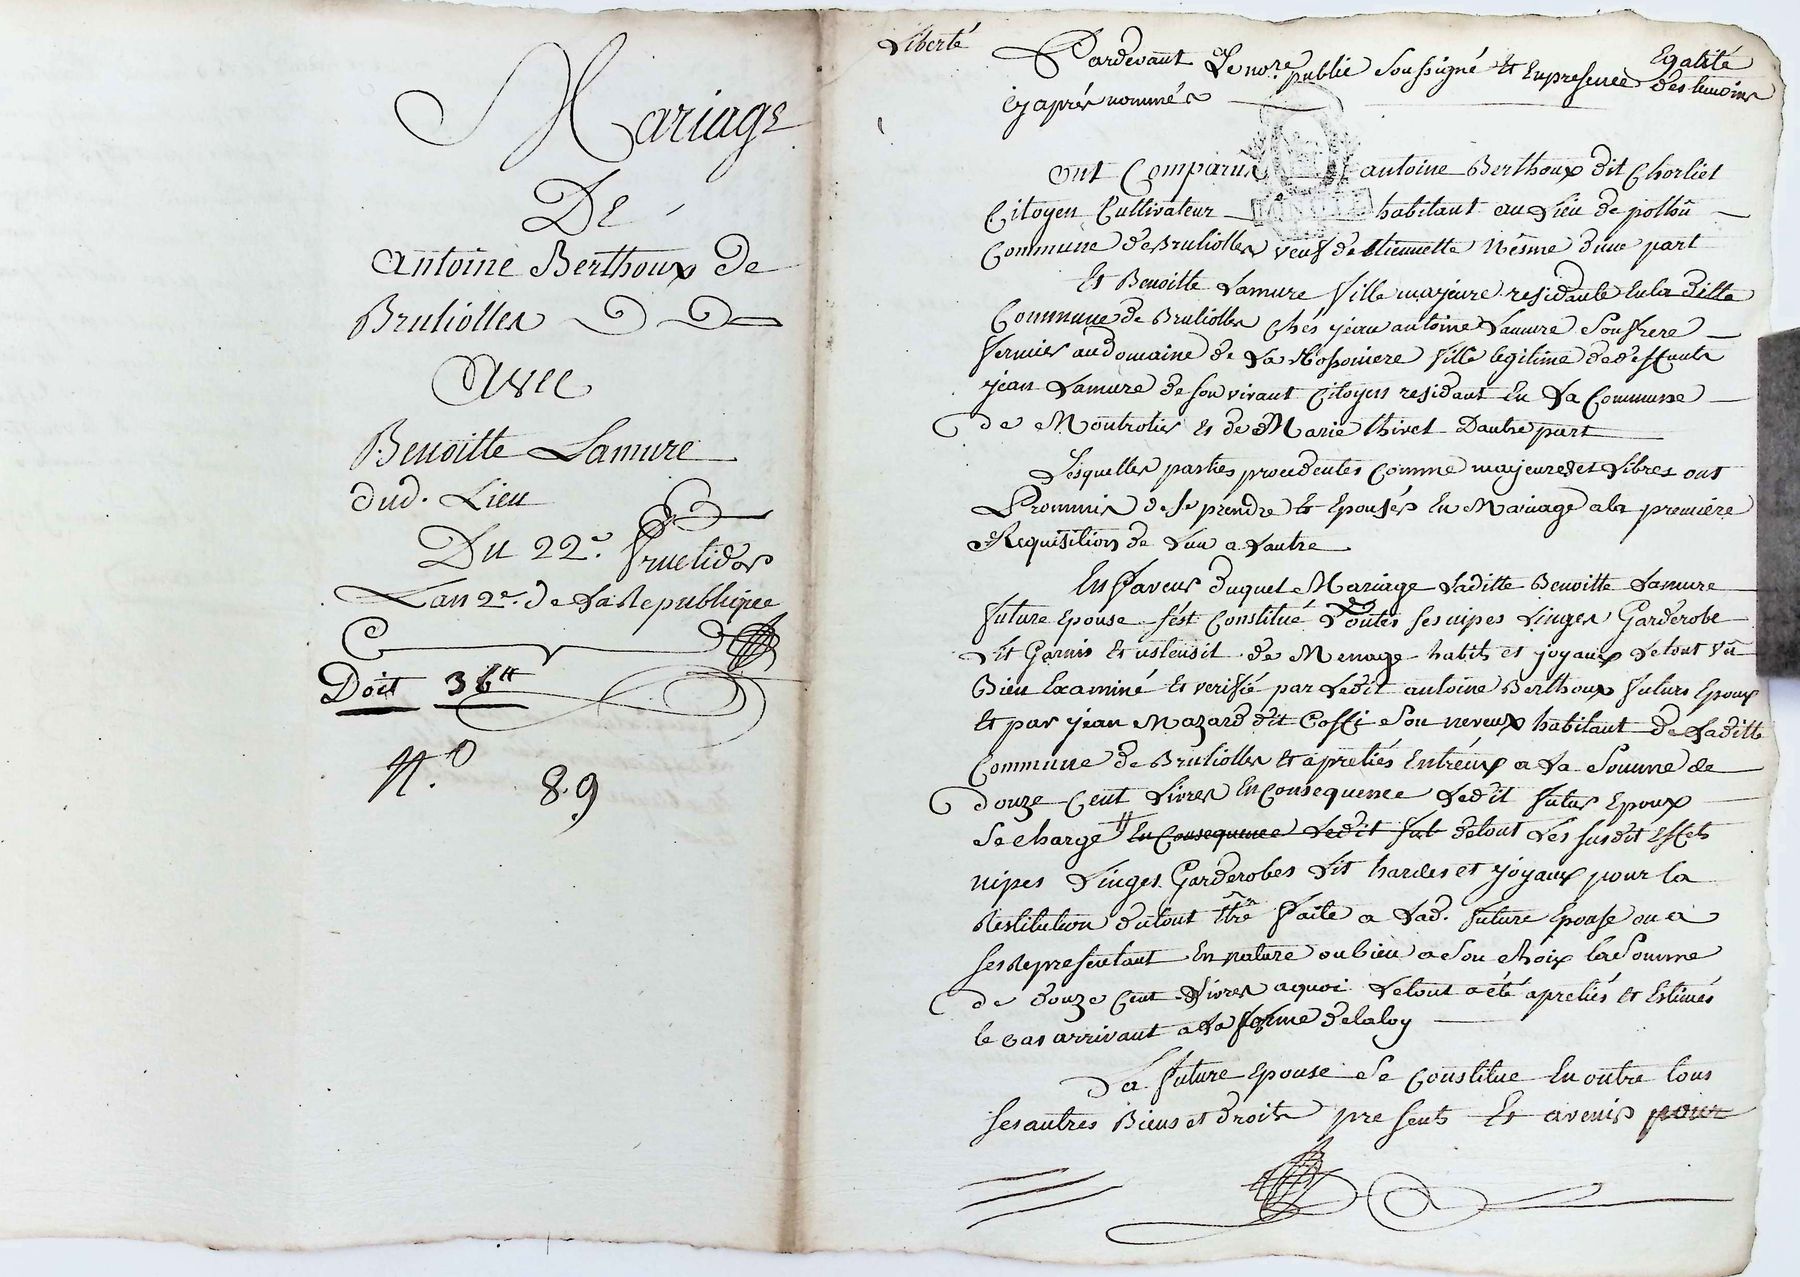 Mariage
De
antoine Berthoux de
Bruliolles
Avec
Benoitte Lamure
dud. Lieu
Du 22e. fructidor
Lan 2e. de La Republique
Doit 36tt
N.o 89
Liberté
Egalité
Pardevant Le nore. public soussigné Et Enpresence des temoins
Cy aprés nommés
ont Comparus antoine Berthoux dit Chorliet
Citoyen Cultivateur habitant au Lieu de
Commune de Brulioller veuf de etiennette Nésme dune part
Et Benoitte Lamure fille majeure residante En la ditte
Commune de Brulioller chés jean antoine Lamure Son frere
fermier audomaine de La fille legitime de deffunts
jean Lamure de son vivant Citoyen residant En La Commune
de Montrotier Et de Marie thivel Dautre part
Lesquelles parties procedentes comme majeures et Libres ont
Prommis de se prendre Et Epousér En Mariage ala premiere
Requisition de Lun a Lautre
En faveur duquel Mariage Laditte Benoitte Lamure
future epouse sést Constitué Toutes ses nipes Linges Garderobe
Lit Garnis Et ustensil de Menage habits et joyaux Letout vû
Bien Examiné Et verifié par Ledit antoine Berthoux futurs Epoux
Et par jean Mazard dit Coffi Son neveux habitant de Laditte
Commune de Brulioller Et apretiés Entréux a La Somme de
douze Cent Livres En Consequence Ledit futur Epoux
Se charge En Consequence Ledit fut detout Les susdit Effets
nipes Linges Garderobes Lit hardes et joyaux pour la
Restitution dutout Etre faite a Lad. future Epouse ou a
ses Representant En nature oubien a Son choix la Somme
de douze Cent Livres aquoi Letout a été apretiés Et Estimés
le Cas arrivant a La forme dela loy
La future epouse Se Constitue En outre tous
ses autres Biens et droits presents Et avenir pour